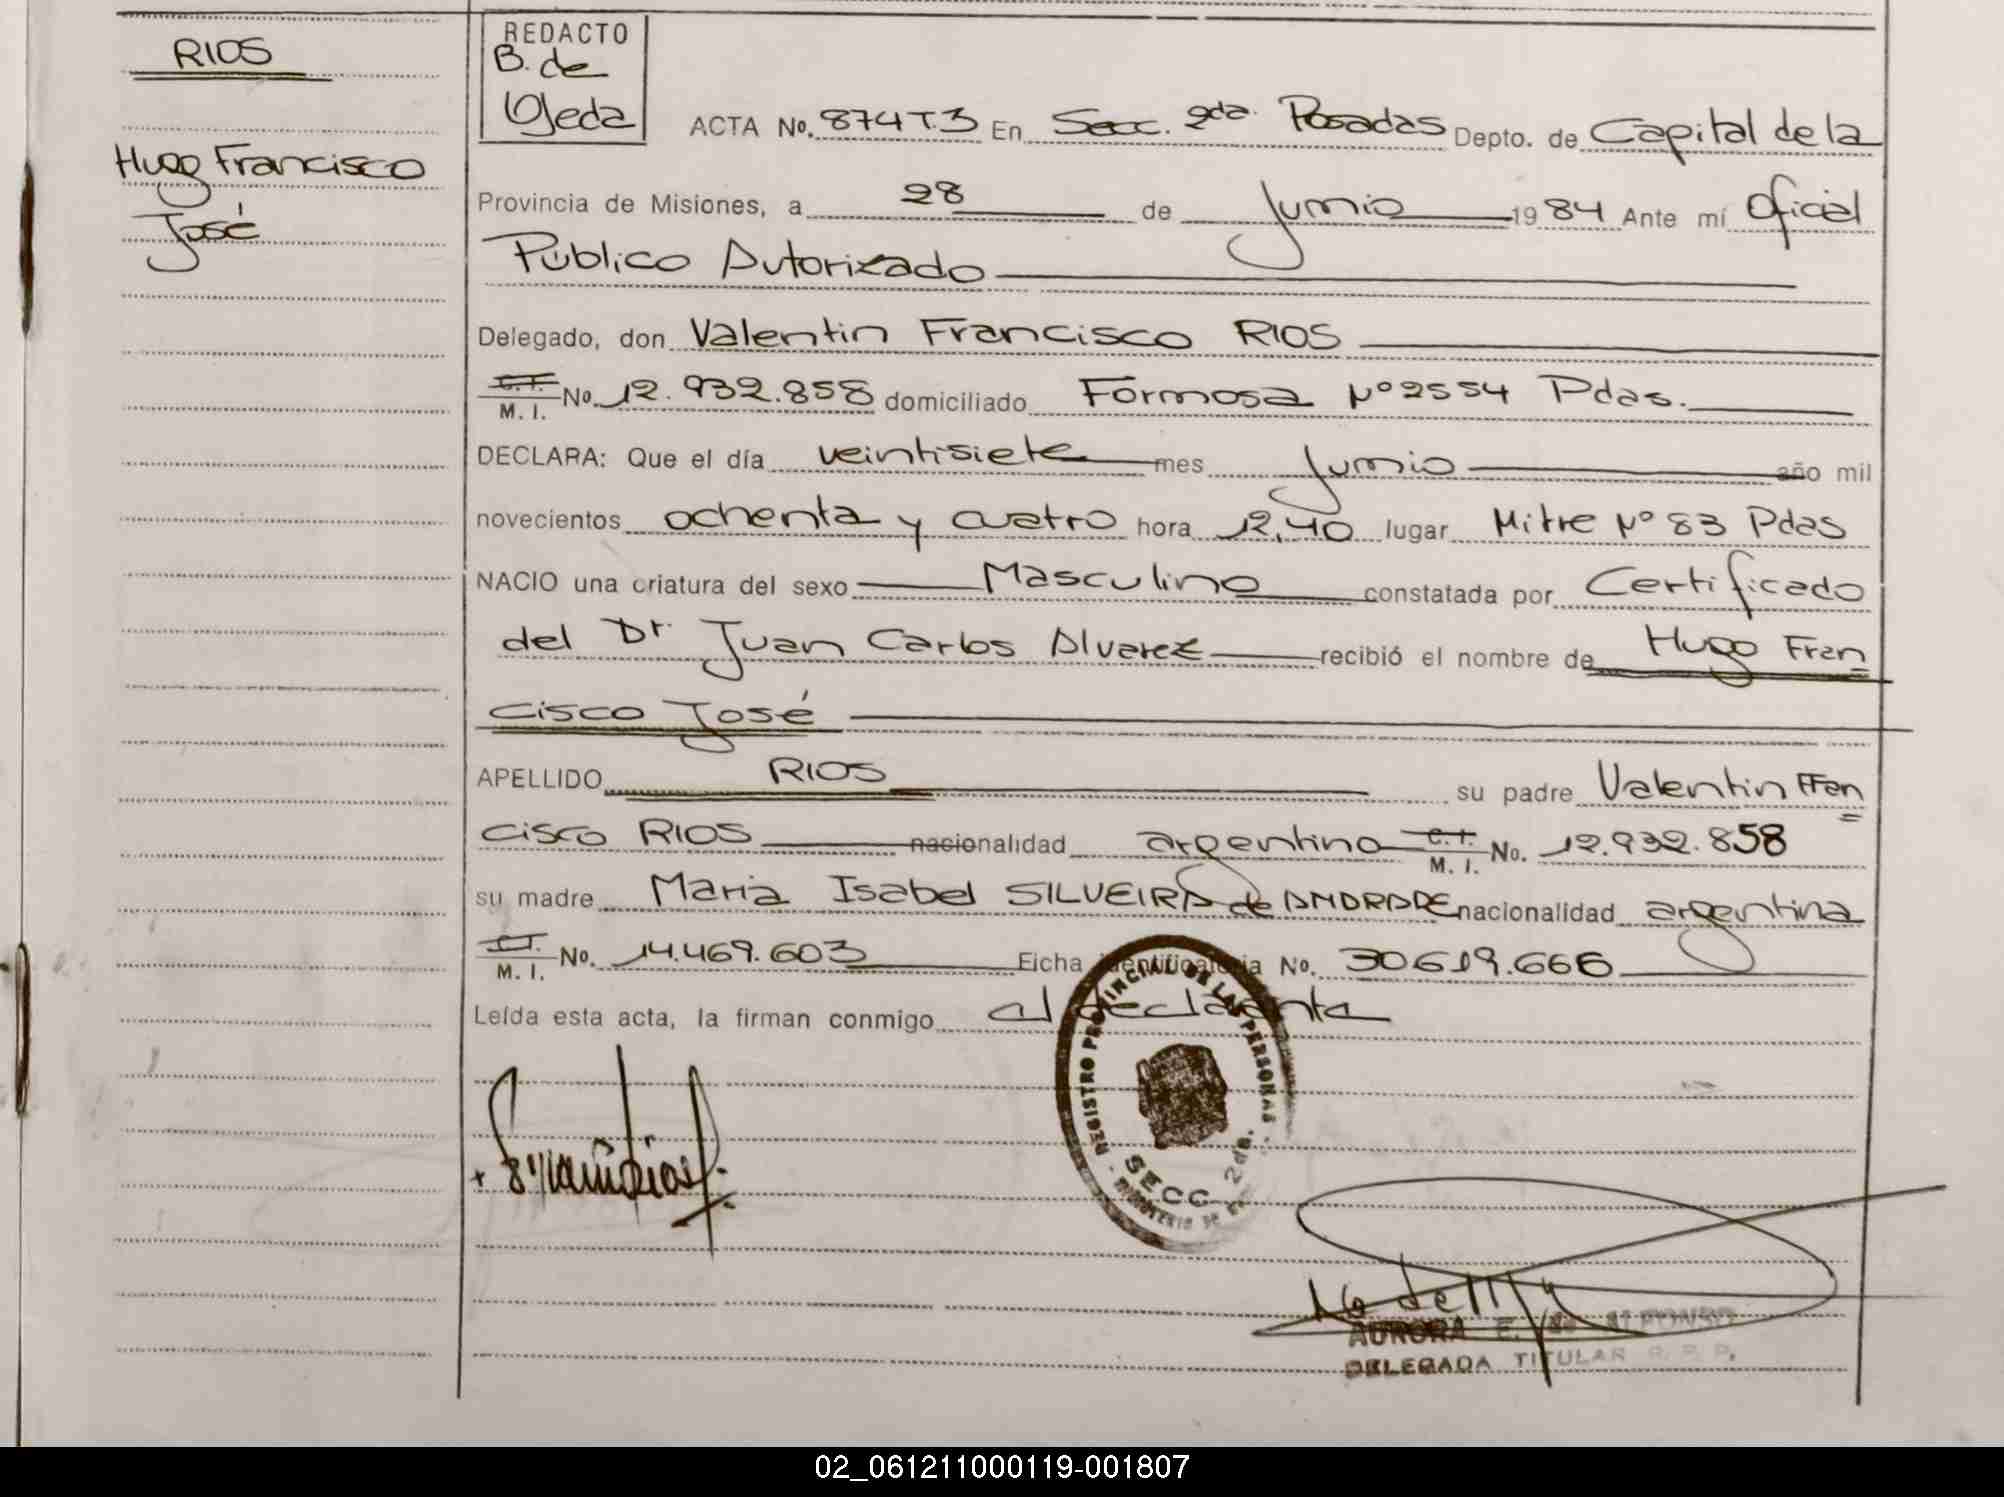 RIOS
Hugo Francisco
José
REDACTO
B. de
Ojeda
ACTA No. 874T.3 En Secc. 2da. Posadas Depto. de Capital de la
Provincia de Misiones, a 28 de Junio 1984 Ante mí Oficial
Público Autorizado
Delegado, don Valentin Francisco RIOS
C.I. M. I. No. 12.932.858 domiciliado Formosa Nº 2554 Pdas.
DECLARA: Que el día veintisiete mes Junio año mil
novecientos ochenta y cuatro hora 12,40 lugar Mitre Nº 83 Pdas
NACIO una criatura del sexo Masculino constatada por Certificado
del Dr. Juan Carlos Alvarez recibió el nombre de Hugo Fran=
cisco José
APELLIDO RIOS su padre Valentin Fran=
cisco RIOS nacionalidad argentino C.I. M. I. No. 12.932.858
su madre Maria Isabel SILVEIRA de ANDRADE nacionalidad argentina
C.I. M. I. No. 14.469.603 Ficha identificatoria No. 30619.666
Leída esta acta, la firman conmigo el declarante
REGISTRO PROVINCIAL DE LAS PERSONAS
SECC. 2da.
MINISTERIO DE
AURORA E. de ALFONSO
DELEGADA TITULAR R. P. P.
02_061211000119-001807